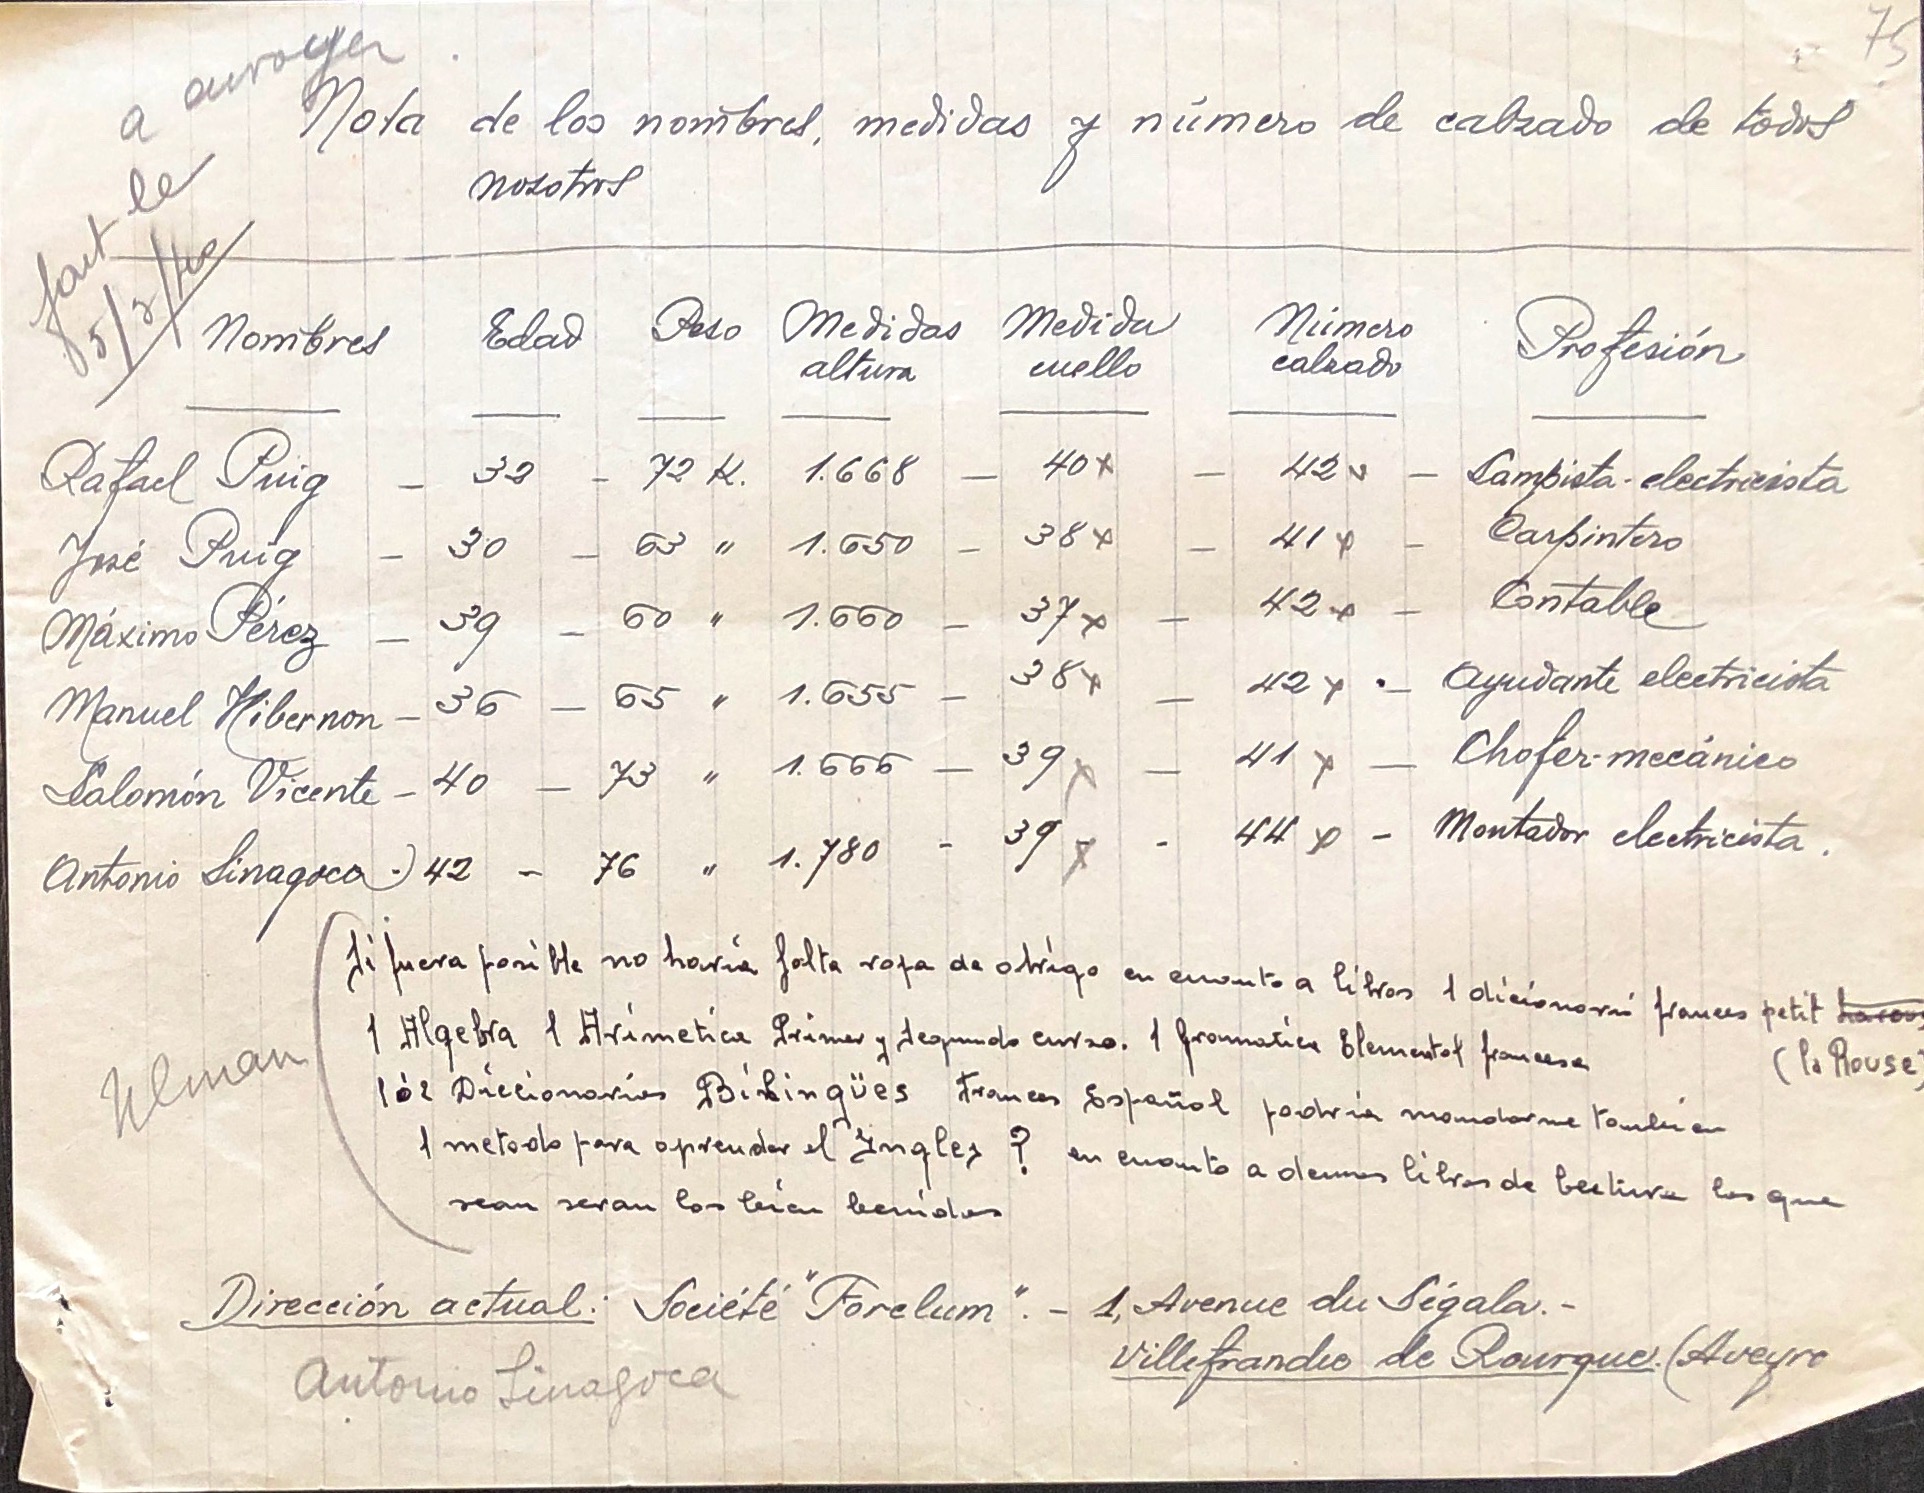 75
a envoyer
fait le
5/3/40
Nota de los nombres, medidas y número de calzado de todos
nosotros
Nombres Edad Peso Medidas altura Medida cuello Número calzado Profesión
Rafael Puig - 32 - 72 K. 1.668 - 40 x - 42 x - Lampista-electricista
José Puig - 30 - 63 " 1.650 - 38 x - 41 x - Carpintero
Máximo Pérez - 39 - 60 " 1.660 - 37 x - 42 x - Contable
Manuel Hibernon - 36 - 65 " 1.655 - 38 x - 42 x - Ayudante electricista
Salomón Vicente - 40 - 73 " 1.666 - 39 x - 41 x - Chofer-mecánico
Antonio Sinagoca -) 42 - 76 " 1.780 - 39 x - 44 x - Montador electricista.
Si fuera posible no haria falta ropa de abrigo en cuanto a libros 1 dicionario frances petit
(la Rouse)
1 Algebra 1 Arimetica Primer y segundo curso. 1 gramatica Elemental francesa
1 ó 2 Diccionarios Bilingües Frances Español podria mandarme tambien
1 metodo para aprender el Ingles ? en cuanto a demas libros de lectura los que
sean seran los bien benidos
Ulman
Dirección actual: Société "Forclum". - 1, Avenue du Ségala. -
Villefranche de Rourgue. (Aveyro
Antonio Sinagoca